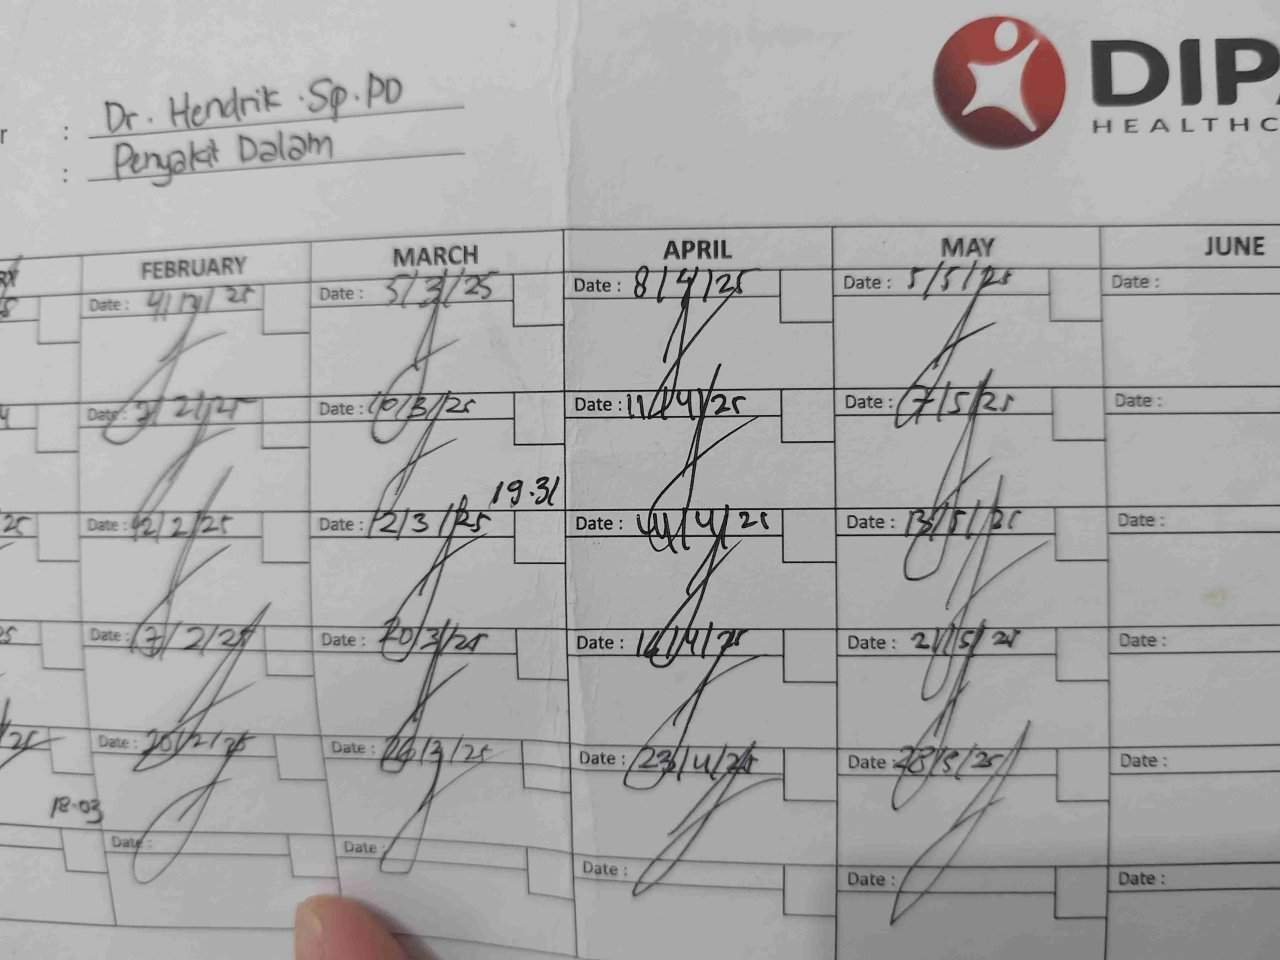 DIPA
HEALTHC
r : Dr. Hendrik .Sp.PD
: Penyakit Dalam
FEBRUARY MARCH APRIL MAY JUNE
Date : 4/2/25 Date : 5/3/25 Date : 8/4/25 Date : 5/5/25 Date :
Date : 2/25 Date : 10/3/25 Date : 11/4/25 Date : 7/5/25 Date :
19.31
25 Date : 12/2/25 Date : 12/3/25 Date : /4/25 Date : 13/5/25 Date :
25 Date : 17/2/25 Date : 20/3/25 Date : /4/25 Date : 21/5/25 Date :
/25 Date : 20/2/25 Date : 26/3/25 Date : 23/4/25 Date : 28/5/25 Date :
18.03
Date : Date : Date : Date : Date :